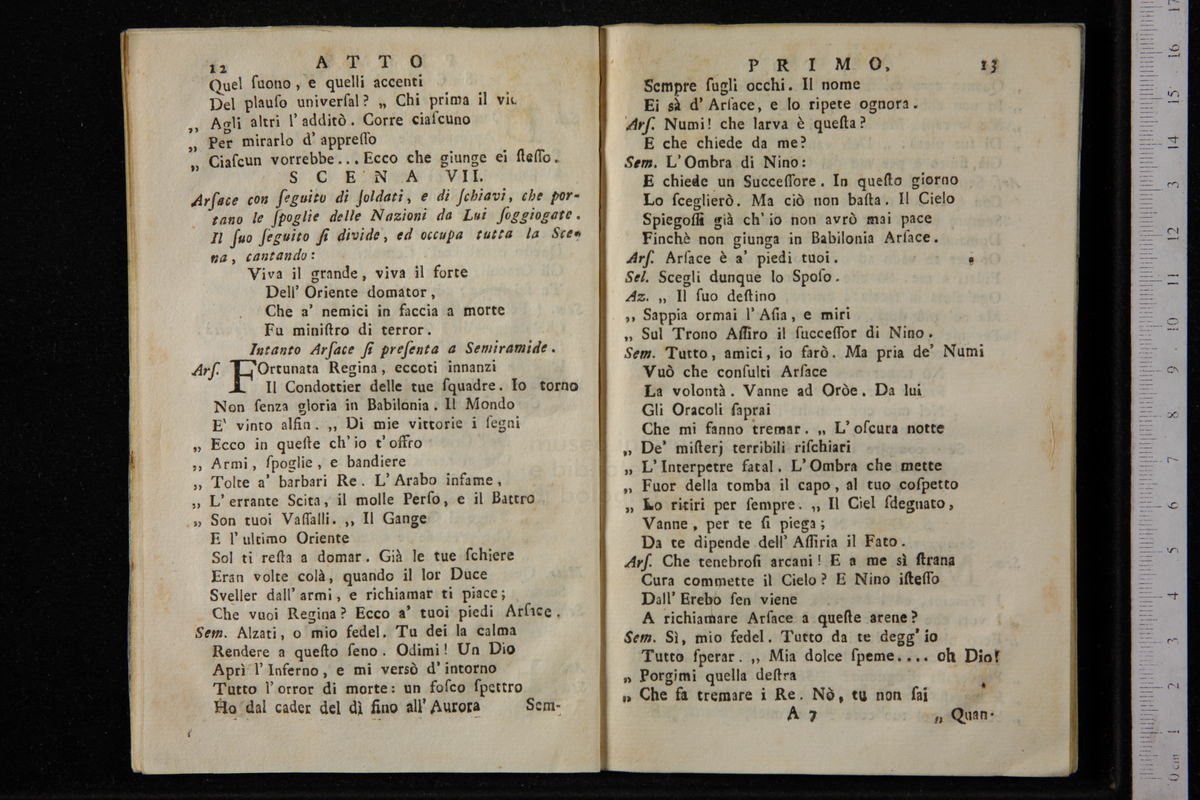 12 ATTO
Quel ſuono, e quelli accenti
Del plauſo univerſal? „ Chi prima il
„ Agli altri l' additò. Corre ciaſcuno
„ Per mirarlo d' appreſſo
„ Ciaſcun vorrebbe... Ecco che giunge ei ſteſſo.
SCENA VII.
Arſace con ſeguito di ſoldati, e di ſchiavi, che por-
tano le ſpoglie delle Nazioni da Lui ſoggiogate.
Il ſuo ſeguito ſi divide, ed occupa tutta la Sce-
na, cantando:
Viva il grande, viva il forte
Dell' Oriente domator,
Che a' nemici in faccia a morte
Fu miniſtro di terror.
Intanto Arſace ſi preſenta a Semiramide.
Arſ. FOrtunata Regina, eccoti innanzi
Il Condottier delle tue ſquadre. Io torno
Non ſenza gloria in Babilonia. Il Mondo
E' vinto alfin. „ Di mie vittorie i ſegni
„ Ecco in queſte ch' io t' offro
„ Armi, ſpoglie, e bandiere
„ Tolte a' barbari Re. L' Arabo infame,
„ L' errante Scita, il molle Perſo, e il Battro
„ Son tuoi Vaſſalli. „ Il Gange
E l' ultimo Oriente
Sol ti reſta a domar. Già le tue ſchiere
Eran volte colà, quando il lor Duce
Sveller dall' armi, e richiamar ti piace;
Che vuoi Regina? Ecco a' tuoi piedi Arſace.
Sem. Alzati, o mio fedel. Tu dei la calma
Rendere a queſto ſeno. Odimi! Un Dio
Aprì l' Inferno, e mi versò d' intorno
Tutto l' orror di morte: un foſco ſpettro
Ho dal cader del dì fino all' Aurora
Sem-
PRIMO. 13
Sempre ſugli occhi. Il nome
Ei sà d' Arſace, e lo ripete ognora.
Arſ. Numi! che larva è queſta?
E che chiede da me?
Sem. L' Ombra di Nino:
E chiede un Succeſſore. In queſto giorno
Lo ſceglierò. Ma ciò non baſta. Il Cielo
Spiegoſſi già ch' io non avrò mai pace
Finchè non giunga in Babilonia Arſace.
Arſ. Arſace è a' piedi tuoi.
Sel. Scegli dunque lo Spoſo.
Az. „ Il ſuo deſtino
„ Sappia ormai l' Aſia, e miri
„ Sul Trono Aſſiro il ſucceſſor di Nino.
Sem. Tutto, amici, io farò. Ma pria de' Numi
Vuò che conſulti Arſace
La volontà. Vanne ad Oròe. Da lui
Gli Oracoli ſaprai
Che mi fanno tremar. „ L' oſcura notte
„ De' miſterj terribili riſchiari
„ L' Interpetre fatal. L' Ombra che mette
„ Fuor della tomba il capo, al tuo coſpetto
„ Lo ritiri per ſempre. „ Il Ciel ſdegnato,
Vanne, per te ſi piega;
Da te dipende dell' Aſſiria il Fato.
Arſ. Che tenebroſi arcani! E a me sì ſtrana
Cura commette il Cielo? E Nino iſteſſo
Dall' Erebo ſen viene
A richiamare Arſace a queſte arene?
Sem. Sì, mio fedel. Tutto da te degg' io
Tutto ſperar. „ Mia dolce ſpeme.... oh Dio!
„ Porgimi quella deſtra
„ Che fa tremare i Re. Nò, tu non ſai
A 7 „ Quan-
0 cm 1 2 3 4 5 6 7 8 9 10 11 12 13 14 15 16 17